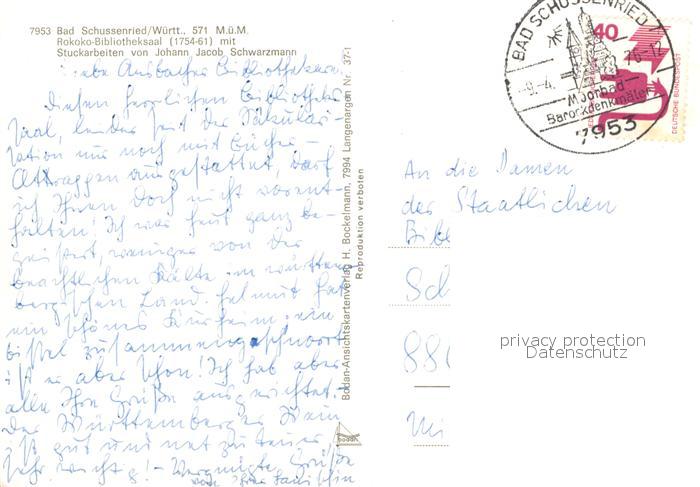 7953 Bad Schussenried/Württ., 571 M.ü.M.
Rokoko-Bibliotheksaal (1754-61) mit
Stuckarbeiten von Johann Jacob Schwarzmann
Liebe Ansbacher Bibliothekare
Diesen herrlichen Bibliotheks
saal, leider seit der Säkulari-
sation nur noch mit Bücher-
Attrappen ausgestattet, darf
ich Ihnen doch nicht vorent-
halten! Ich war heut ganz be-
geistert, weniger von der
beachtlichen Kälte im württem-
bergischen Land. Helmut hat
ein schönes Kurheim, ein
bißel zusammengeschnurrt
ist er aber schon! Ich hab aber
alle Ihre Grüße ausgerichtet.
Der Württemberger Wein
ist gut und nat zu teuer,
sehr wichtig! - Vergnügte Grüße
von Ihrer
Bodan-Ansichtskartenverlag H. Bockelmann, 7994 Langenargen Nr. 37-1
Reproduktion verboten
bodan
BAD SCHUSSENRIED
-9.-4. 76-12
Moorbad-
Barockdenkmäler
7953
40
DEUTSCHE BUNDESPOST
An die Damen
der Staatlichen
Bibl
Sch
88
privacy protection
Datenschutz